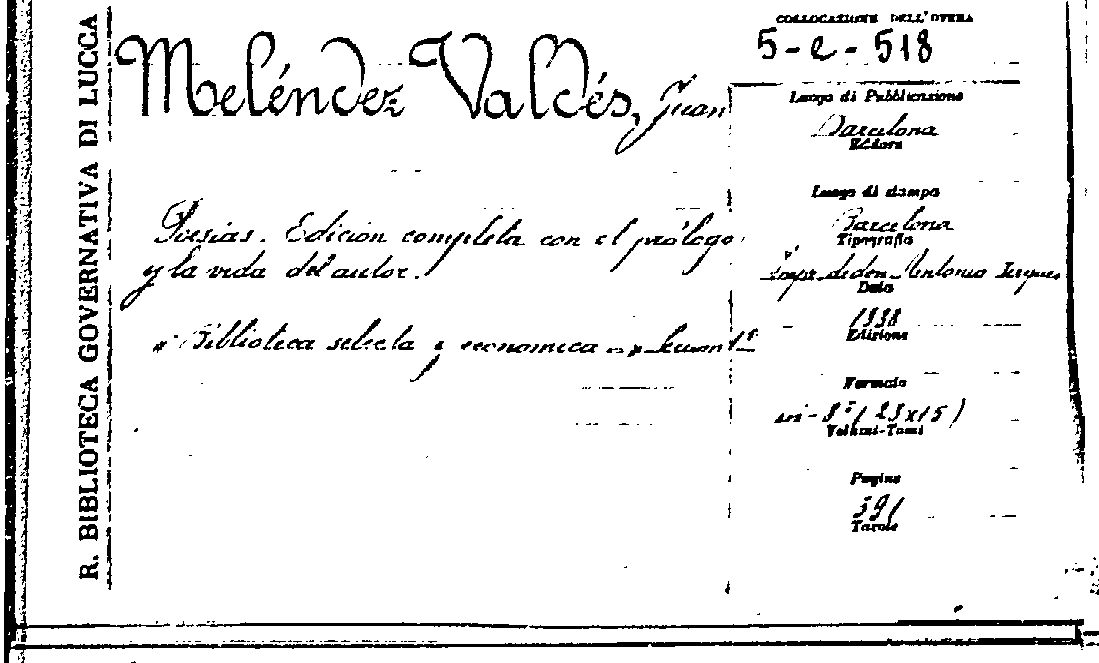 R. BIBLIOTECA GOVERNATIVA DI LUCCA
Meléndez Valdés, Juan
Poesias. Edicion completa con el prólogo
y la vida del autor.
"Biblioteca selecta y economica
COLLOCAZIONE DELL'OPERA
5-e-518
Luogo di Pubblicazione
Barcelona
Editore
Luogo di stampa
Barcelona
Tipografia
Impr. de don Antonio
Data
1838
Edizione
Formato
in-8º (23x15)
Volumi-Tomi
Pagine
391
Tavole